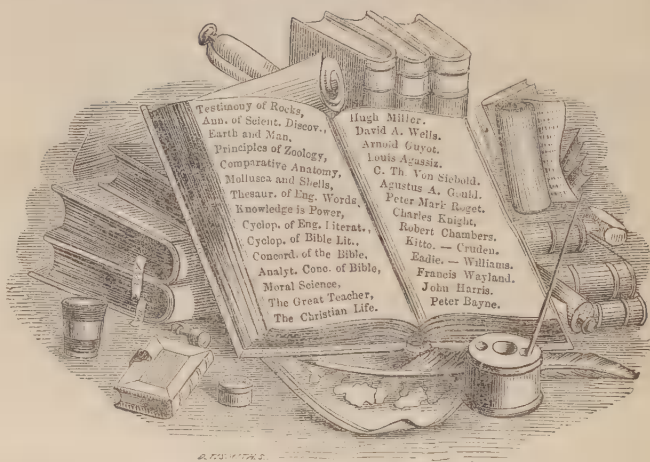 Testimony of Rocks,
Ann. of Scient. Discov.,
Earth and Man,
Principles of Zoology,
Comparative Anatomy,
Mollusca and Shells,
Thesaur. of Eng. Words,
Knowledge is Power,
Cyclop. of Eng. Literat.,
Cyclop. of Bible Lit.,
Concord. of the Bible,
Analyt. Conc. of Bible,
Moral Science,
The Great Teacher,
The Christian Life.
Hugh Miller.
David A. Wells.
Arnold Guyot.
Louis Agassiz.
C. Th. Von Siebold.
Agustus A. Gould.
Peter Mark Roget.
Charles Knight.
Robert Chambers.
Kitto. — Cruden.
Eadie. — Williams.
Francis Wayland.
John Harris.
Peter Bayne.